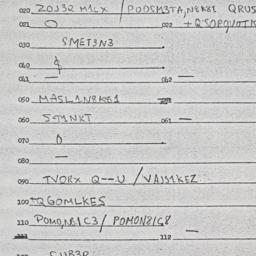 020 ZOJ32 M1LX / PODSM3TA,N8K81 QRUS
021 O 022 +QSOPQUOTI
030 SMET3N3
040
041 — 042 —
050 MASL1N8K81
060 S31NKT 061 —
070 0
080 —
090 TVORX Q--U / VAJS1KEZ
100 +QGOMLKES
110 POMO,N81C3/ POMON81G8
112 —
CUB3R